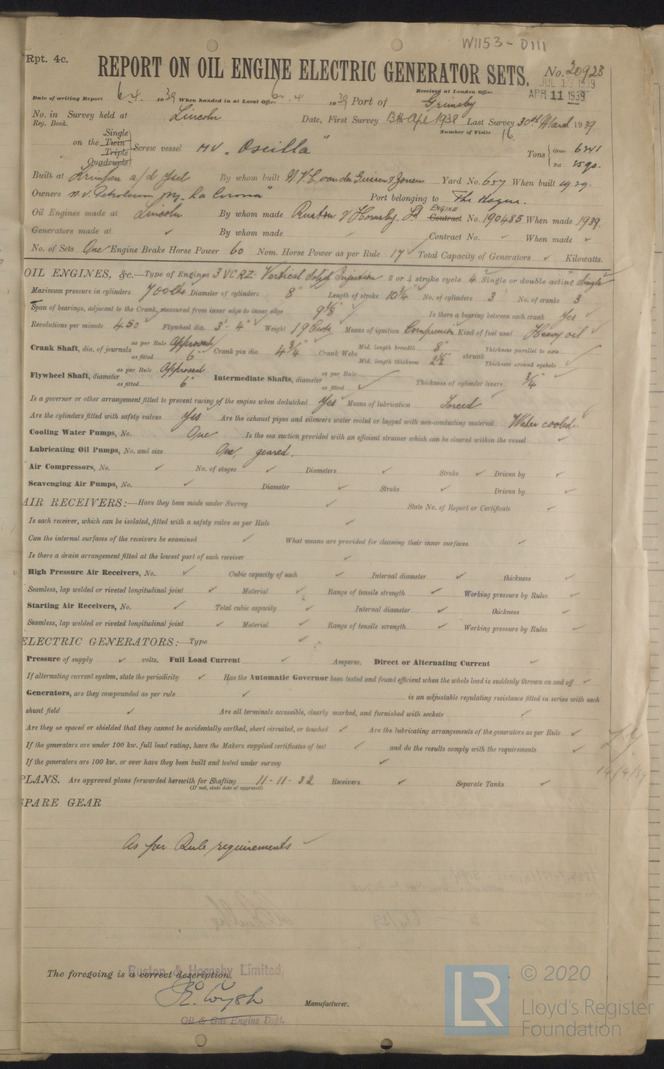 W1153-0111
Rpt. 4c.
REPORT ON OIL ENGINE ELECTRIC GENERATOR SETS.
No. 20923
APR 11 1939
Received at London Office
Date of writing Report 6.4. 1939 When handed in at Local Office 6.4 1939 Port of Grimsby
No. in Survey held at Lincoln Date, First Survey Last Survey 30th March 1939
Reg. Book. Number of Visits 16
Single
on the Twin Screw vessel MV. "Oscilla" Tons Gross 6341
Triple
Quadruple
Built at Krimpen a/d Ysel By whom built Yard No. 657 When built 1939
Owners N.V. Petroleum My. "La Corona" Port belonging to The Hague
Oil Engines made at Lincoln By whom made Ruston & Hornsby Engine Contract No. 190485 When made 1939
Generators made at By whom made Contract No. When made
No. of Sets One Engine Brake Horse Power 60 Nom. Horse Power as per Rule 17 Total Capacity of Generators Kilowatts.
OIL ENGINES, &c.—Type of Engines 3 VCRZ Vertical 2 or 4 stroke cycle 4 Single or double acting Single
Maximum pressure in cylinders 700 lbs Diameter of cylinders 8" Length of stroke 10¾ No. of cylinders 3 No. of cranks 3
Span of bearings, adjacent to the Crank, measured from inner edge to inner edge 9⅛" Is there a bearing between each crank Yes
Revolutions per minute 450 Flywheel dia. 3'-4" Weight Means of ignition Compression Kind of fuel used Heavy oil
Crank Shaft, dia. of journals as per Rule Approved as fitted 6" Crank pin dia. 4¾" Crank Webs Mid. length breadth 8" Mid. length thickness shrunk Thickness parallel to axis Thickness around eyehole
Flywheel Shaft, diameter as per Rule Approved as fitted 6" Intermediate Shafts, diameter as per Rule as fitted Thickness of cylinder liners ¾"
Is a governor or other arrangement fitted to prevent racing of the engine when declutched Yes Means of lubrication Forced
Are the cylinders fitted with safety valves Yes Are the exhaust pipes and silencers water cooled or lagged with non-conducting material Water cooled
Cooling Water Pumps, No. One Is the sea suction provided with an efficient strainer which can be cleared within the vessel
Lubricating Oil Pumps, No. and size One geared.
Air Compressors, No. No. of stages Diameters Stroke Driven by
Scavenging Air Pumps, No. Diameter Stroke Driven by
AIR RECEIVERS:—Have they been made under Survey State No. of Report or Certificate
Is each receiver, which can be isolated, fitted with a safety valve as per Rule
Can the internal surfaces of the receivers be examined What means are provided for cleaning their inner surfaces
Is there a drain arrangement fitted at the lowest part of each receiver
High Pressure Air Receivers, No. Cubic capacity of each Internal diameter thickness
Seamless, lap welded or riveted longitudinal joint Material Range of tensile strength Working pressure by Rules
Starting Air Receivers, No. Total cubic capacity Internal diameter thickness
Seamless, lap welded or riveted longitudinal joint Material Range of tensile strength Working pressure by Rules
ELECTRIC GENERATORS:—Type
Pressure of supply volts. Full Load Current Amperes. Direct or Alternating Current
If alternating current system, state the periodicity Has the Automatic Governor been tested and found efficient when the whole load is suddenly thrown on and off
Generators, are they compounded as per rule is an adjustable regulating resistance fitted in series with each
shunt field Are all terminals accessible, clearly marked, and furnished with sockets
Are they so spaced or shielded that they cannot be accidentally earthed, short circuited, or touched Are the lubricating arrangements of the generators as per Rule
If the generators are under 100 kw. full load rating, have the Makers supplied certificates of test and do the results comply with the requirements
If the generators are 100 kw. or over have they been built and tested under survey
PLANS. Are approved plans forwarded herewith for Shafting 11-11-32 Receivers Separate Tanks
(If not, state date of approval)
SPARE GEAR
As per Rule requirements
The foregoing is a correct description.
Ruston & Hornsby Limited,
Manufacturer.
Oil & Gas Engine Dept.
LR
© 2020
Lloyd's Register
Foundation